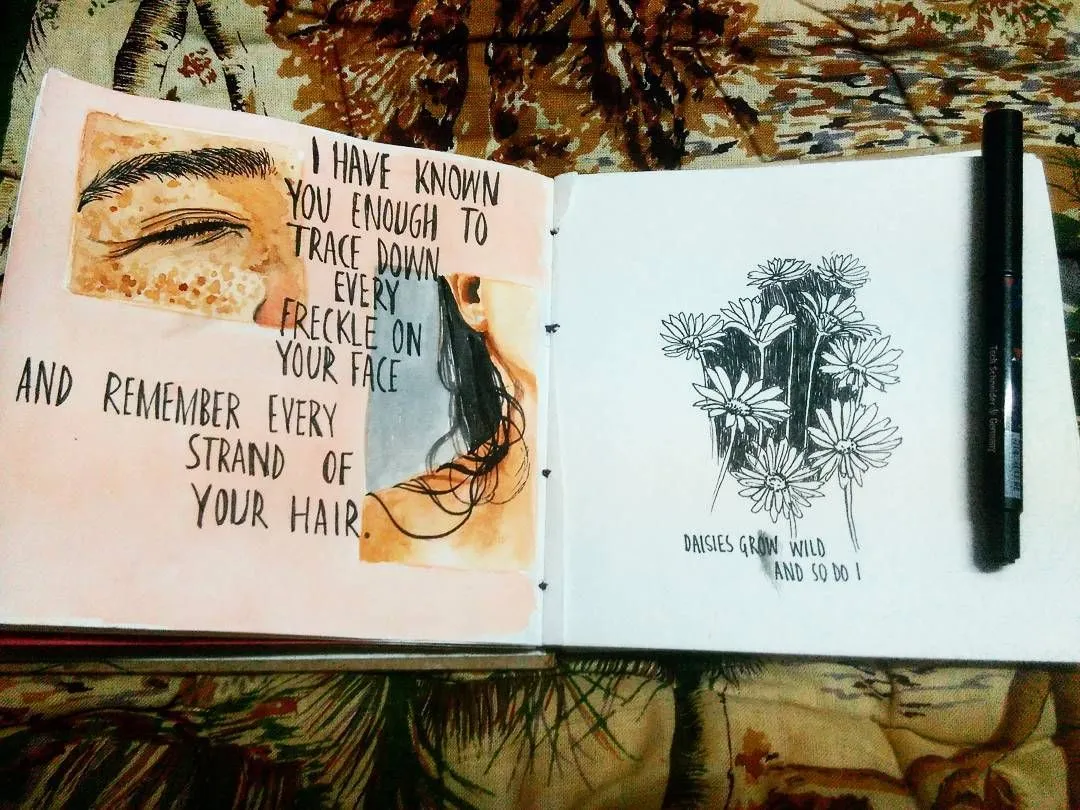 I HAVE KNOWN
YOU ENOUGH TO
TRACE DOWN
EVERY
FRECKLE ON
YOUR FACE
AND REMEMBER EVERY
STRAND OF
YOUR HAIR.
DAISIES GROW WILD
AND SO DO I